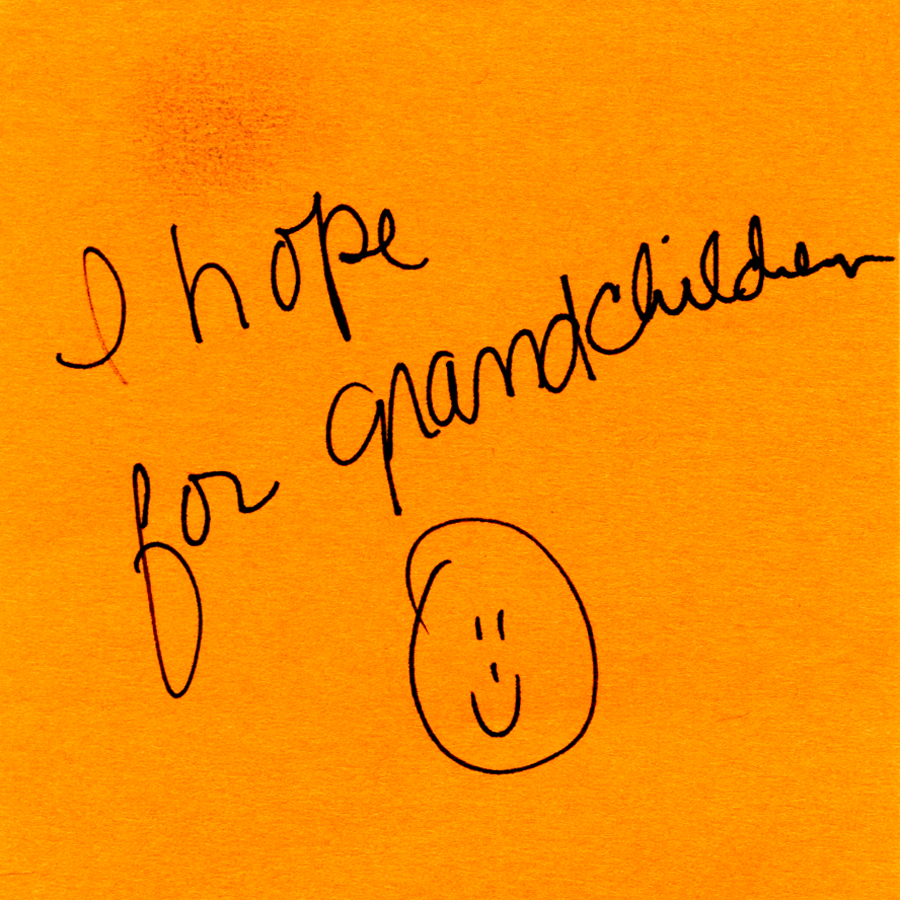 I hope
for grandchildren